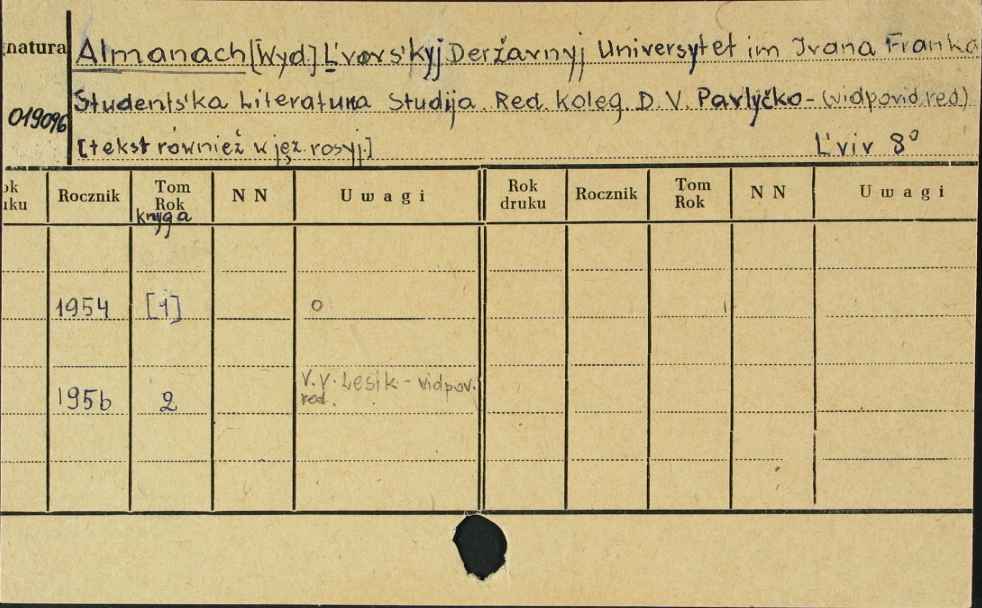 natura Almanach [Wyd] L'vovs'kyj Deržavnyj Universytet im Ivana Franka
Students'ka Literaturna Studija. Red. koleg. D. V. Pavlyčko - (vidpovid. red)
019096
[tekst również w jęz. rosyj.] L'viv 8°
ok uku Rocznik Tom Rok NN Uwagi Rok druku Rocznik Tom Rok NN Uwagi
knyga
1954 [1] o
1956 2 V. V. Lesik - vidpov. red.